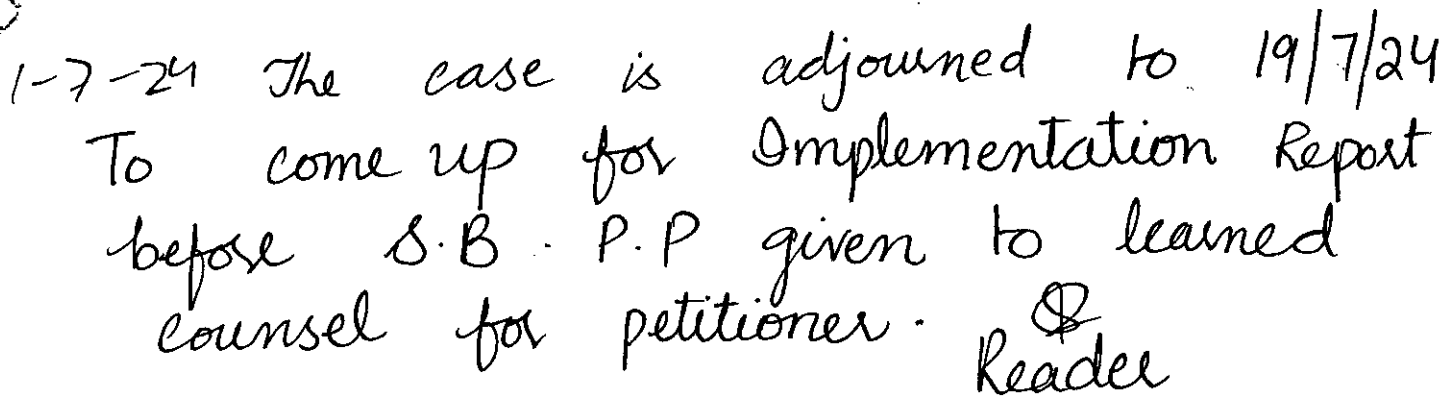 1-7-24 The case is adjourned to 19/7/24
To come up for Implementation Report
before S.B. P.P given to learned
counsel for petitioner.
Reader